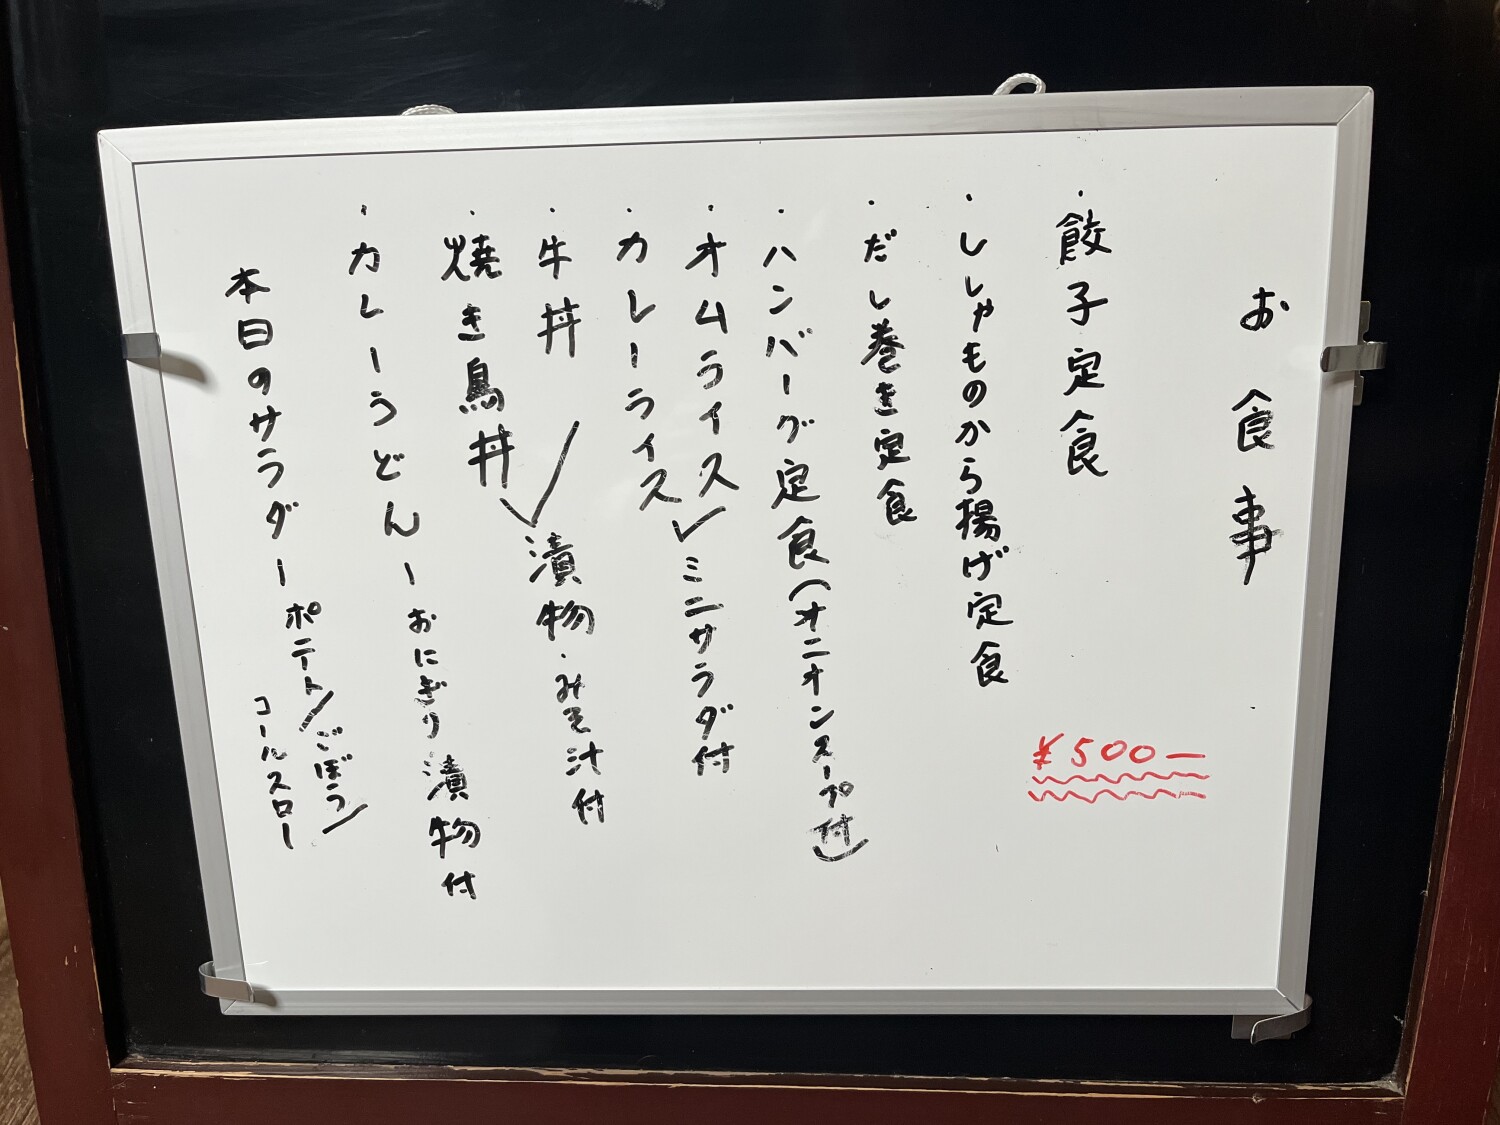 お食事
¥500ー
・餃子定食
・ししゃものから揚げ定食
・だし巻き定食
・ハンバーグ定食(オニオンスープ付)
・オムライス
・カレーライス
ミニサラダ付
・牛丼
・焼き鳥丼
漬物・みそ汁付
・カレーうどんーおにぎり漬物付
本日のサラダーポテト/ごぼう/
コールスロー